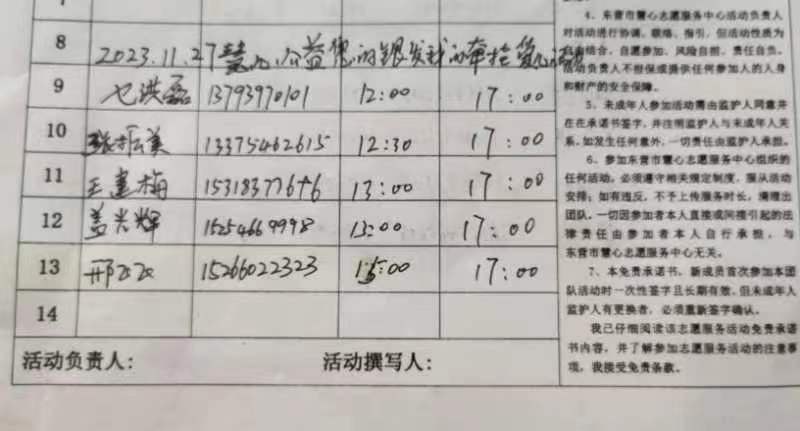 8 2023.11.27慧心公益
9 13793970101 12:00 17:00
10 张振美 13375462615 12:30 17:00
11 王建梅 15318377646 13:00 17:00
12 盖兴辉 15254669998 13:00 17:00
13 邢 15266022323 17:00
14
活动负责人: 活动撰写人:
4、东营市慧心志愿服务中心活动负责人
对活动进行协调、联络、指引,但活动性质为
自由结合、自愿参加、风险自担、责任自负。
活动负责人不担保或提供任何参加人的人身
和财产的安全保障。
5、未成年人参加活动需由监护人同意并
在在承诺书签字,并注明监护人与未成年人关
系,如发生任何意外,一切责任由监护人承担。
6、参加东营市慧心志愿服务中心组织的
任何活动,必须遵守相关规定制度,服从活动
安排;如有违反,不予上传服务时长,清理出
团队,一切因参加者本人直接或间接引起的法
律责任由参加者本人自行承担,与
东营市慧心志愿服务中心无关。
7、本免责承诺书,新成员首次参加本团
队活动时一次性签字且长期有效,但未成年人
监护人有更换者,必须重新签字确认。
我已仔细阅读该志愿服务活动免责承诺
书内容,并了解参加志愿服务活动的注意事
项,我接受免责条款。